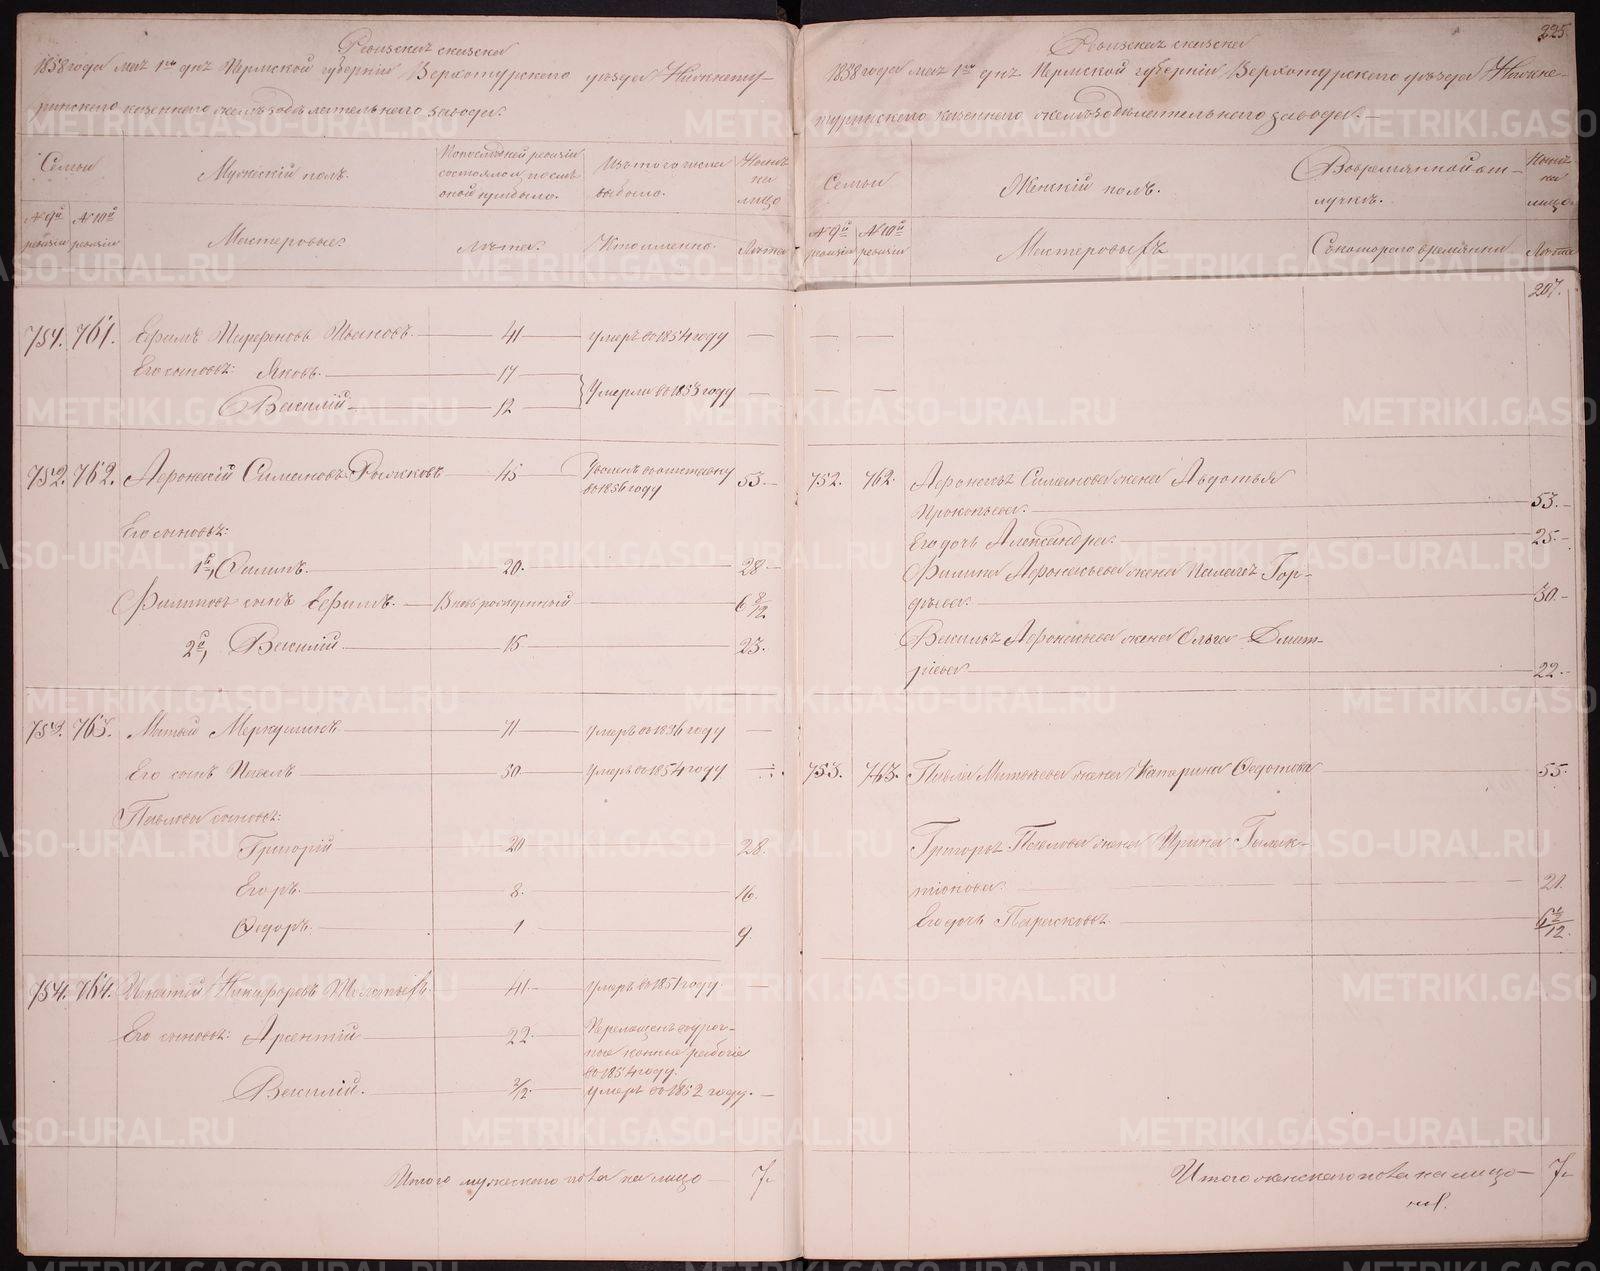 Ревизская сказка
1858 года мая 1го дня Пермской губернии Верхотурского уезда Нижнету-
ринского казеннаго железоделательнаго завода.
Семьи
Мужеский пол.
По последней ревизии
состояло и после
оной прибыло.
Из того числа
выбыло.
Ныне
на
лицо
№ 9й
ревизии
№ 10й
ревизии
Мастеровые.
Лета.
Когда именно.
Лета
761.
Ефимъ Иванов.
41
умеръ в 1854 году
Его сыновья: Яковъ.
17
Василий
12
Умерли в 1853 году
752. 762.
Афонасий Симанов
45
в 1856 году
53.
Его сыновья:
1й, Филипъ.
20.
28.
Филипов сынъ Ефимъ.
6 8/12
2й, Василий
15
23.
753. 763.
Матвей Меркушинъ
71
умеръ в 1856 году
Его сынъ Павелъ
50
умеръ в 1854 году
Павловы сыновья:
Григорий
20
28.
Егоръ.
8.
16.
Федоръ.
1
9.
754. 764.
Игнатий Никифоровъ
41
умеръ в 1851 году.
Его сыновья: Арсентий
22.
Перемещенъ в уроч-
ные конные рабочие
в 1854 году.
Василий.
2/12.
умеръ в 1852 году.
Итого мужескаго пола на лицо
7.
225.
Ревизская сказка
1858 года мая 1го дня Пермской губернии Верхотурского уезда Нижне-
туринскаго казеннаго железоделательнаго завода.
Семьи
Женский полъ.
Во временной от-
лучке.
Ныне
на
лицо.
№ 9й
ревизии
№ 10й
ревизии
Мастеровыхъ
С котораго времени
Лета
207.
752. 762.
Афонасья Симанова жена Авдотья
Прокопьева.
53.
Его дочь Александра.
25.
Филипа Афонасьева жена Палагея Гор-
деева.
30.
Василья Афонасьева жена Ольга Дмит-
риева
22.
753. 763.
Павла Матвеева жена Катерина Федотова
55.
Григорья Павлова жена Ирина Галак-
тионова.
21.
Его дочь Парасковья
Итого женскаго пола на лицо
7.
METRIKI.GASO-URAL.RU